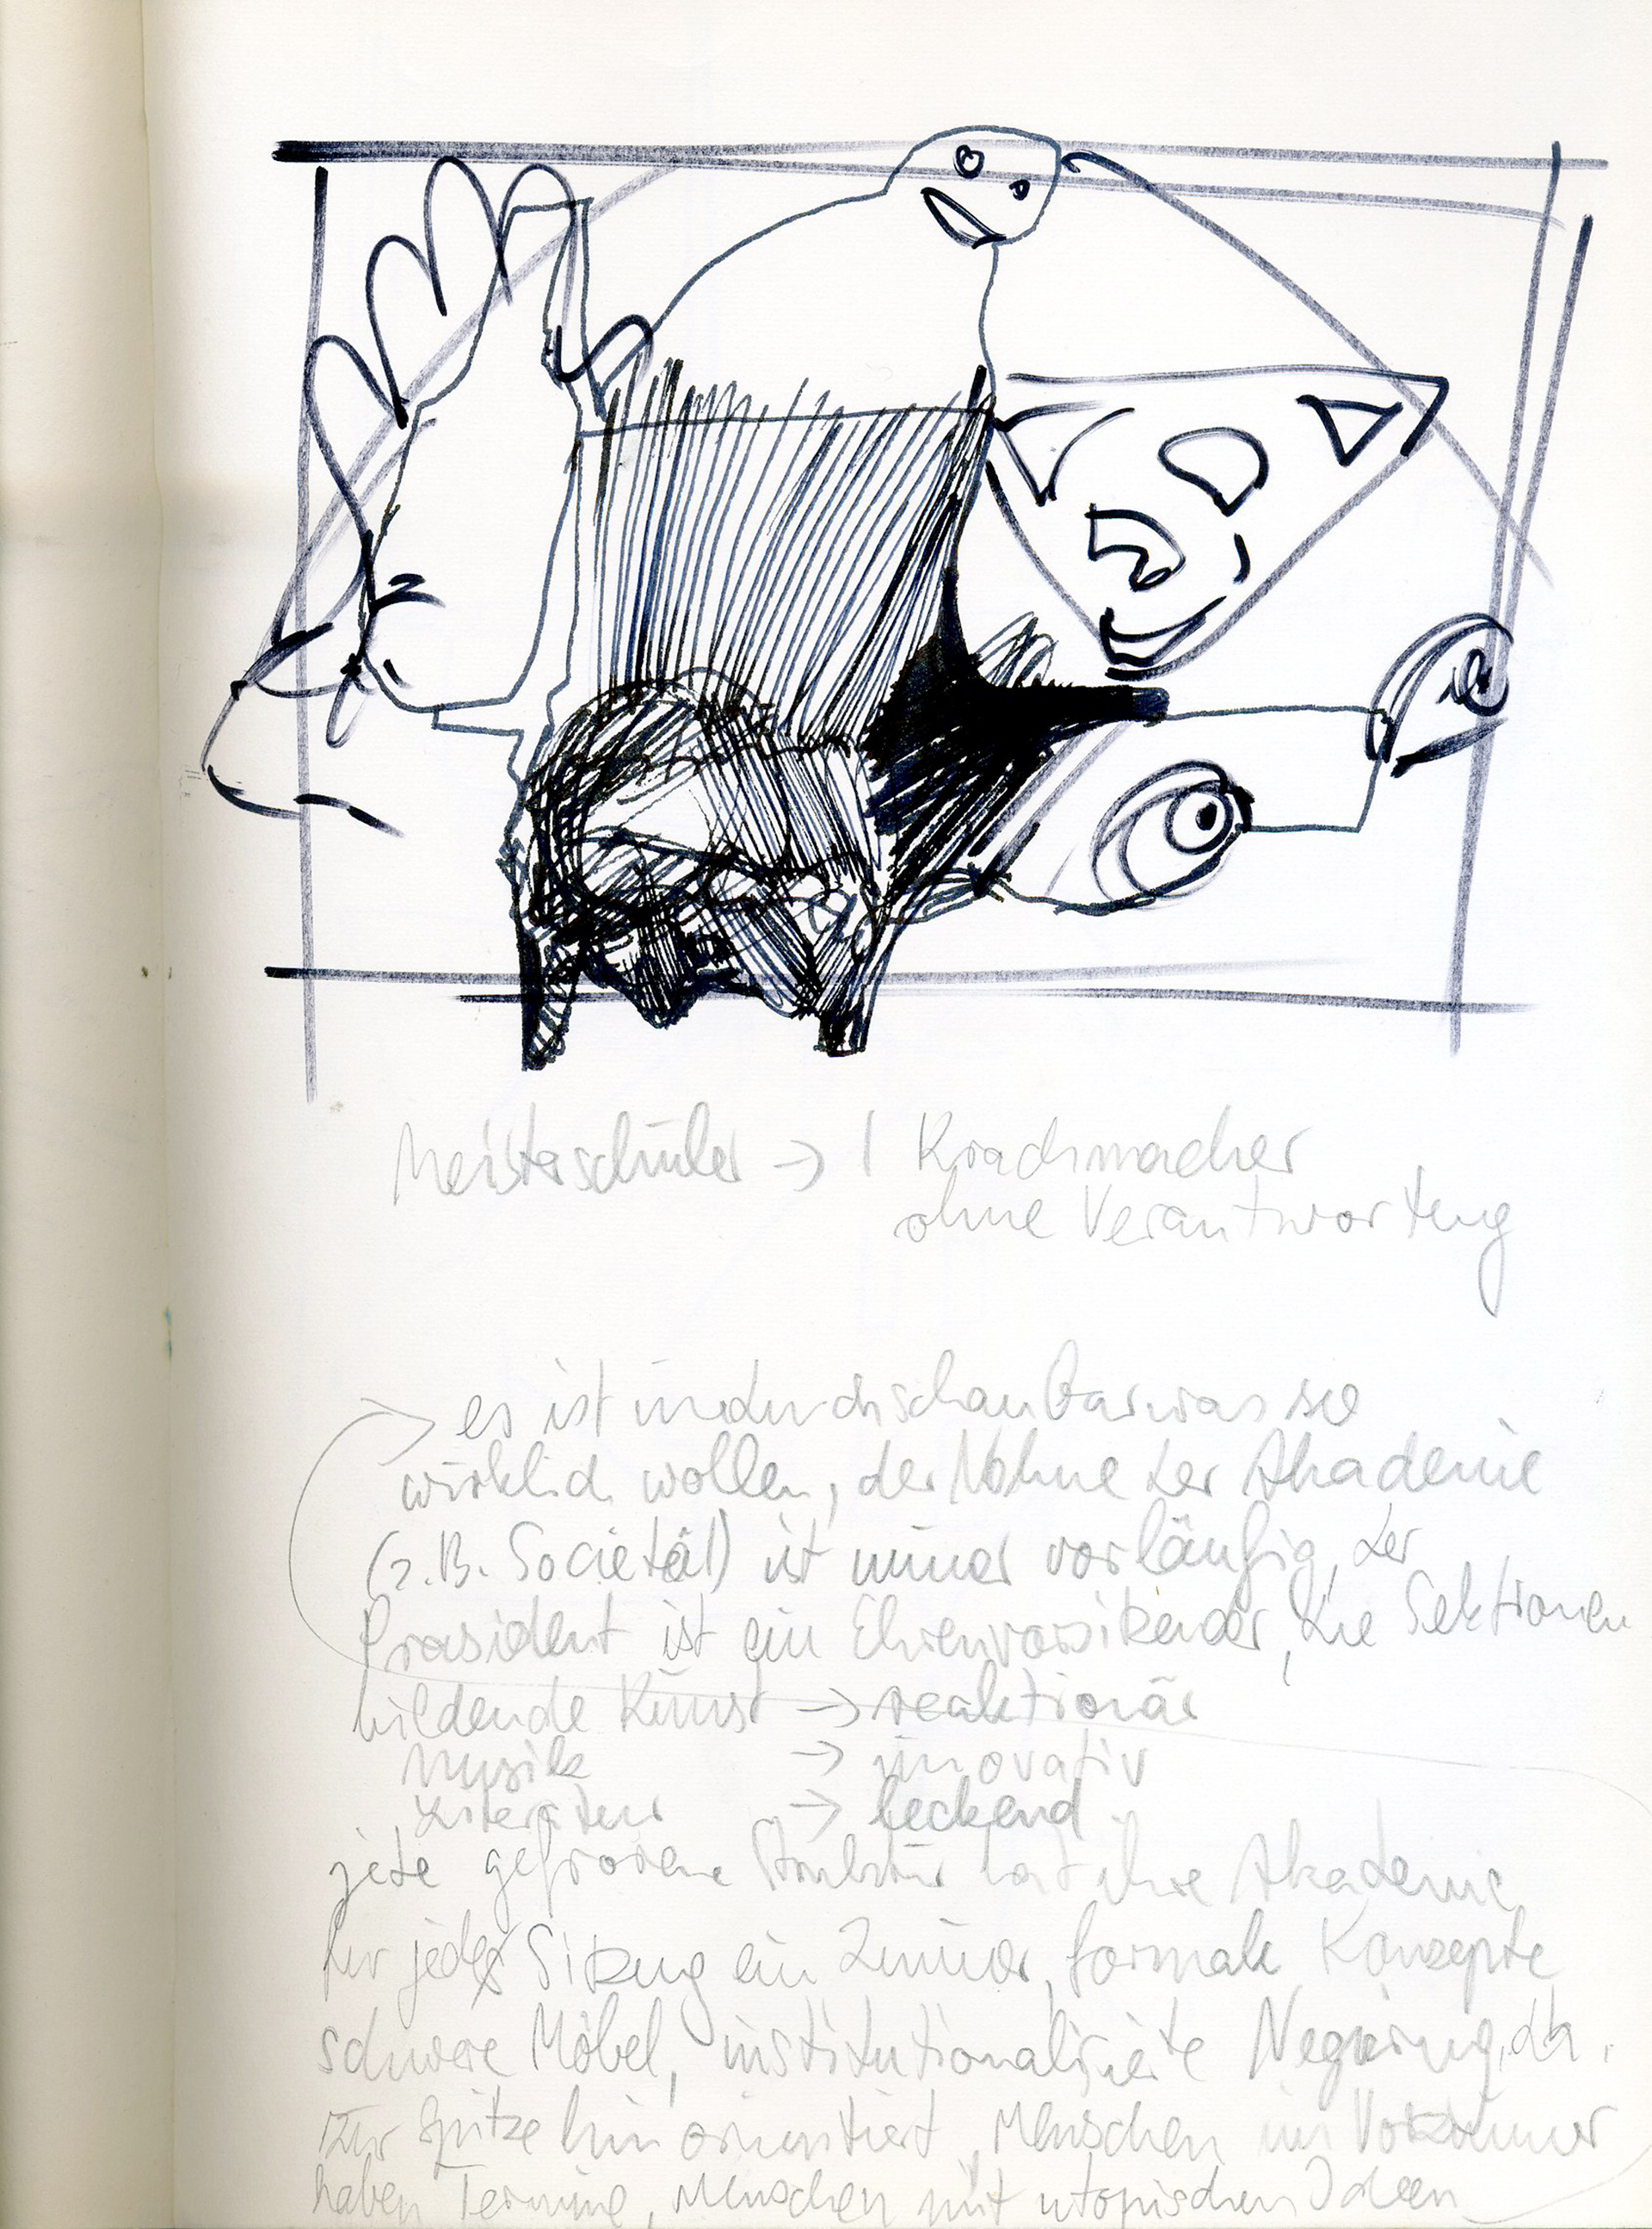 Meisterschüler → 1 Krachmacher
ohne Verantwortung
es ist undurchschaubar was sie
wirklich wollen, der Name der Akademie
(z.B. Societät) ist immer vorläufig, der
Präsident ist ein Ehrenvorsitzender, die Sektionen
bildende Kunst → reaktionär
Musik → innovativ
Literatur → leckend
jede gefrorene Struktur hat ihre Akademie
für jede Sitzung ein Zimmer, formale Konzepte
schwere Möbel, institutionalisierte d.h.
zur Spitze hin orientiert, Menschen im Vorzimmer
haben Termine, Menschen mit utopischen Ideen